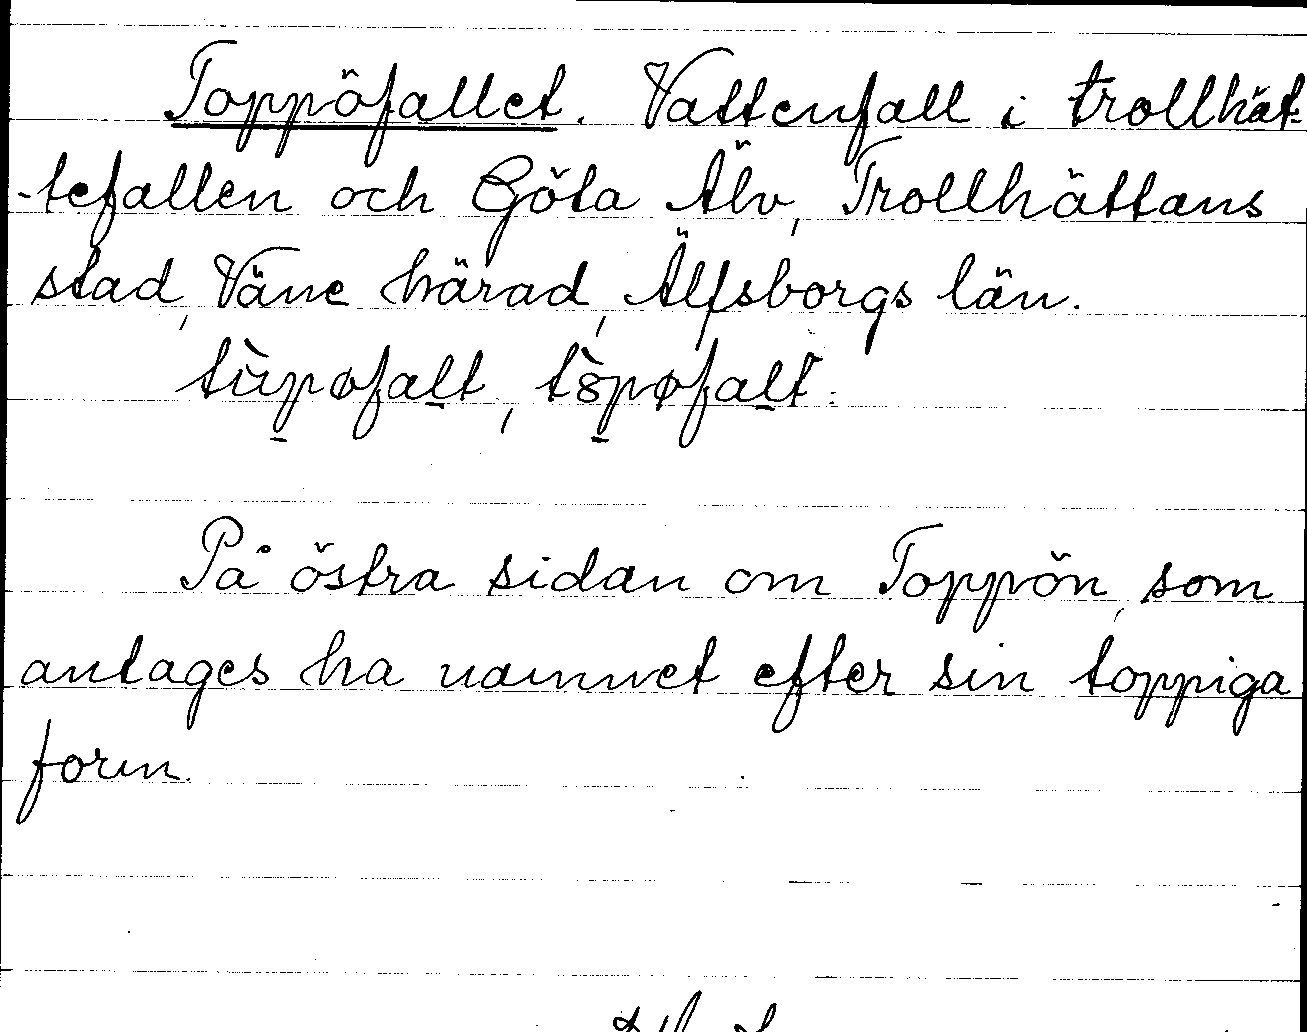 Toppöfallet. Vattenfall i trollhät-
-tefallen och Göta Älv, Trollhättans
stad, Väne härad, Älfsborgs län.
På östra sidan om Toppön, som
antages ha namnet efter sin toppiga
form.